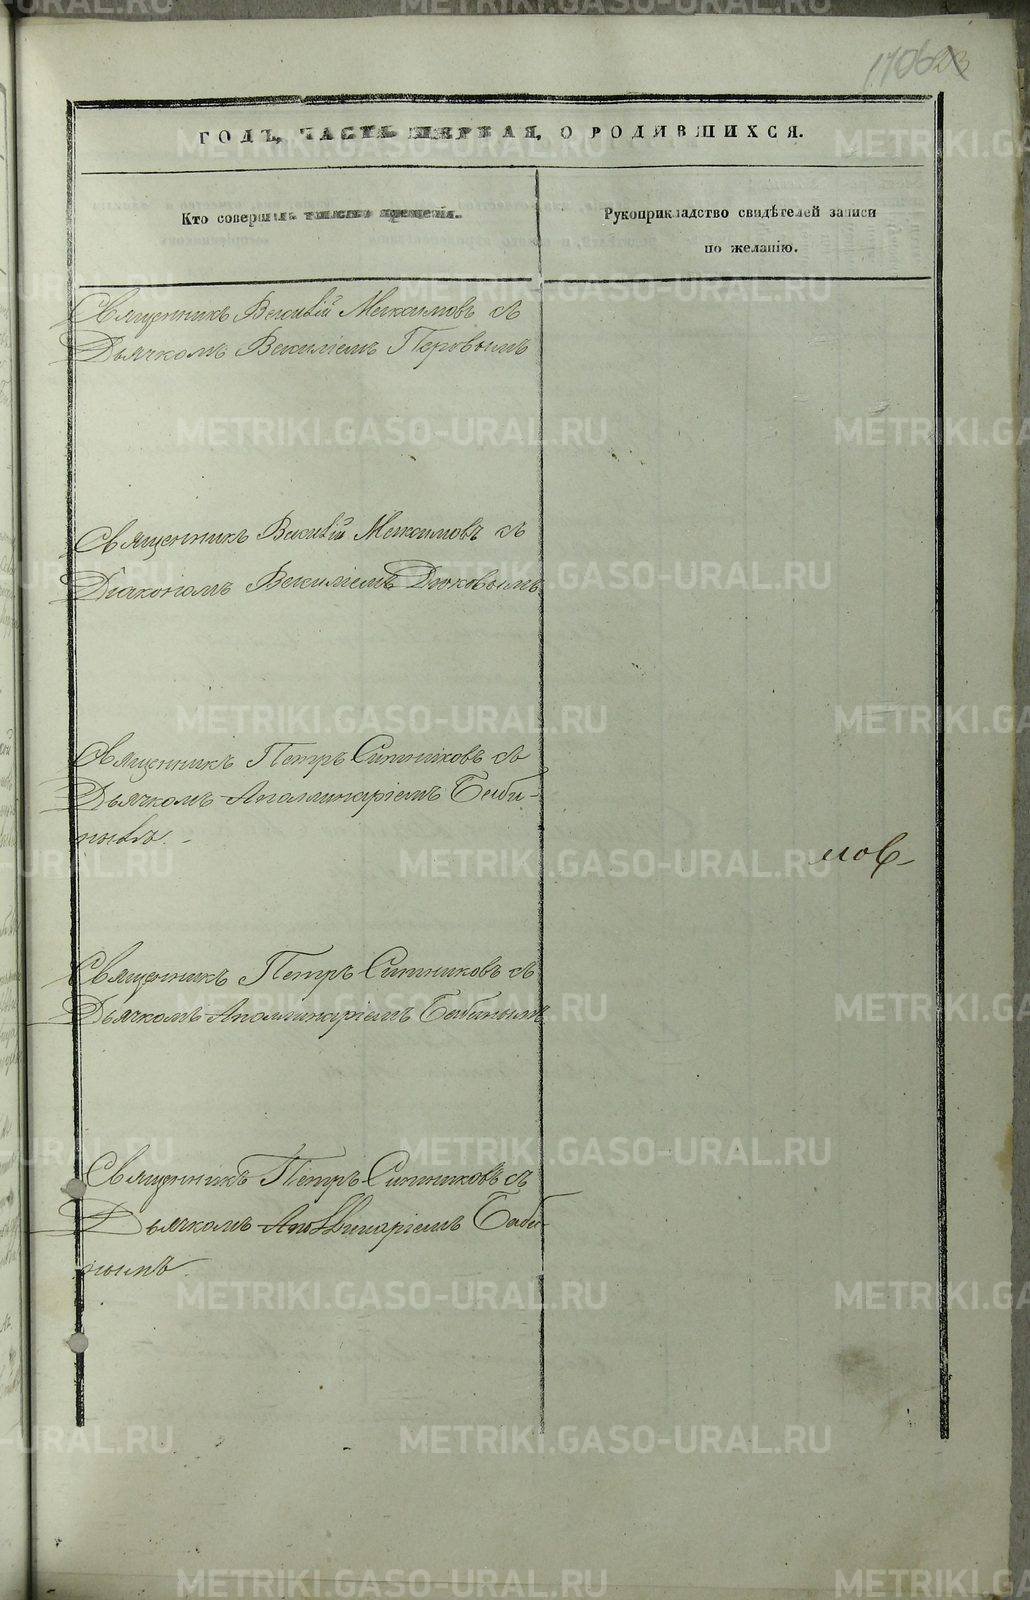 ГОДЪ, ЧАСТЬ ПЕРВАЯ, О РОДИВШИХСЯ.
Кто совершалъ таинство крещенія.
Рукоприкладство свидѣтелей записи
по желанію.
Священникъ Василій Максимовъ съ
Дьячкомъ Василіемъ Перовымъ
Священникъ Василій Максимовъ съ
Діакономъ Василіемъ Дюковымъ
Священникъ Петръ Ситниковъ съ
Дьячкомъ Аполлинаріемъ Баби-
нымъ. -
мов
Священникъ Петръ Ситниковъ съ
Дьячкомъ Аполлинаріемъ Бабинымъ
Священникъ Петръ Ситниковъ съ
Дьячкомъ Аполлинаріемъ Баби-
нымъ.
METRIKI.GASO-URAL.RU